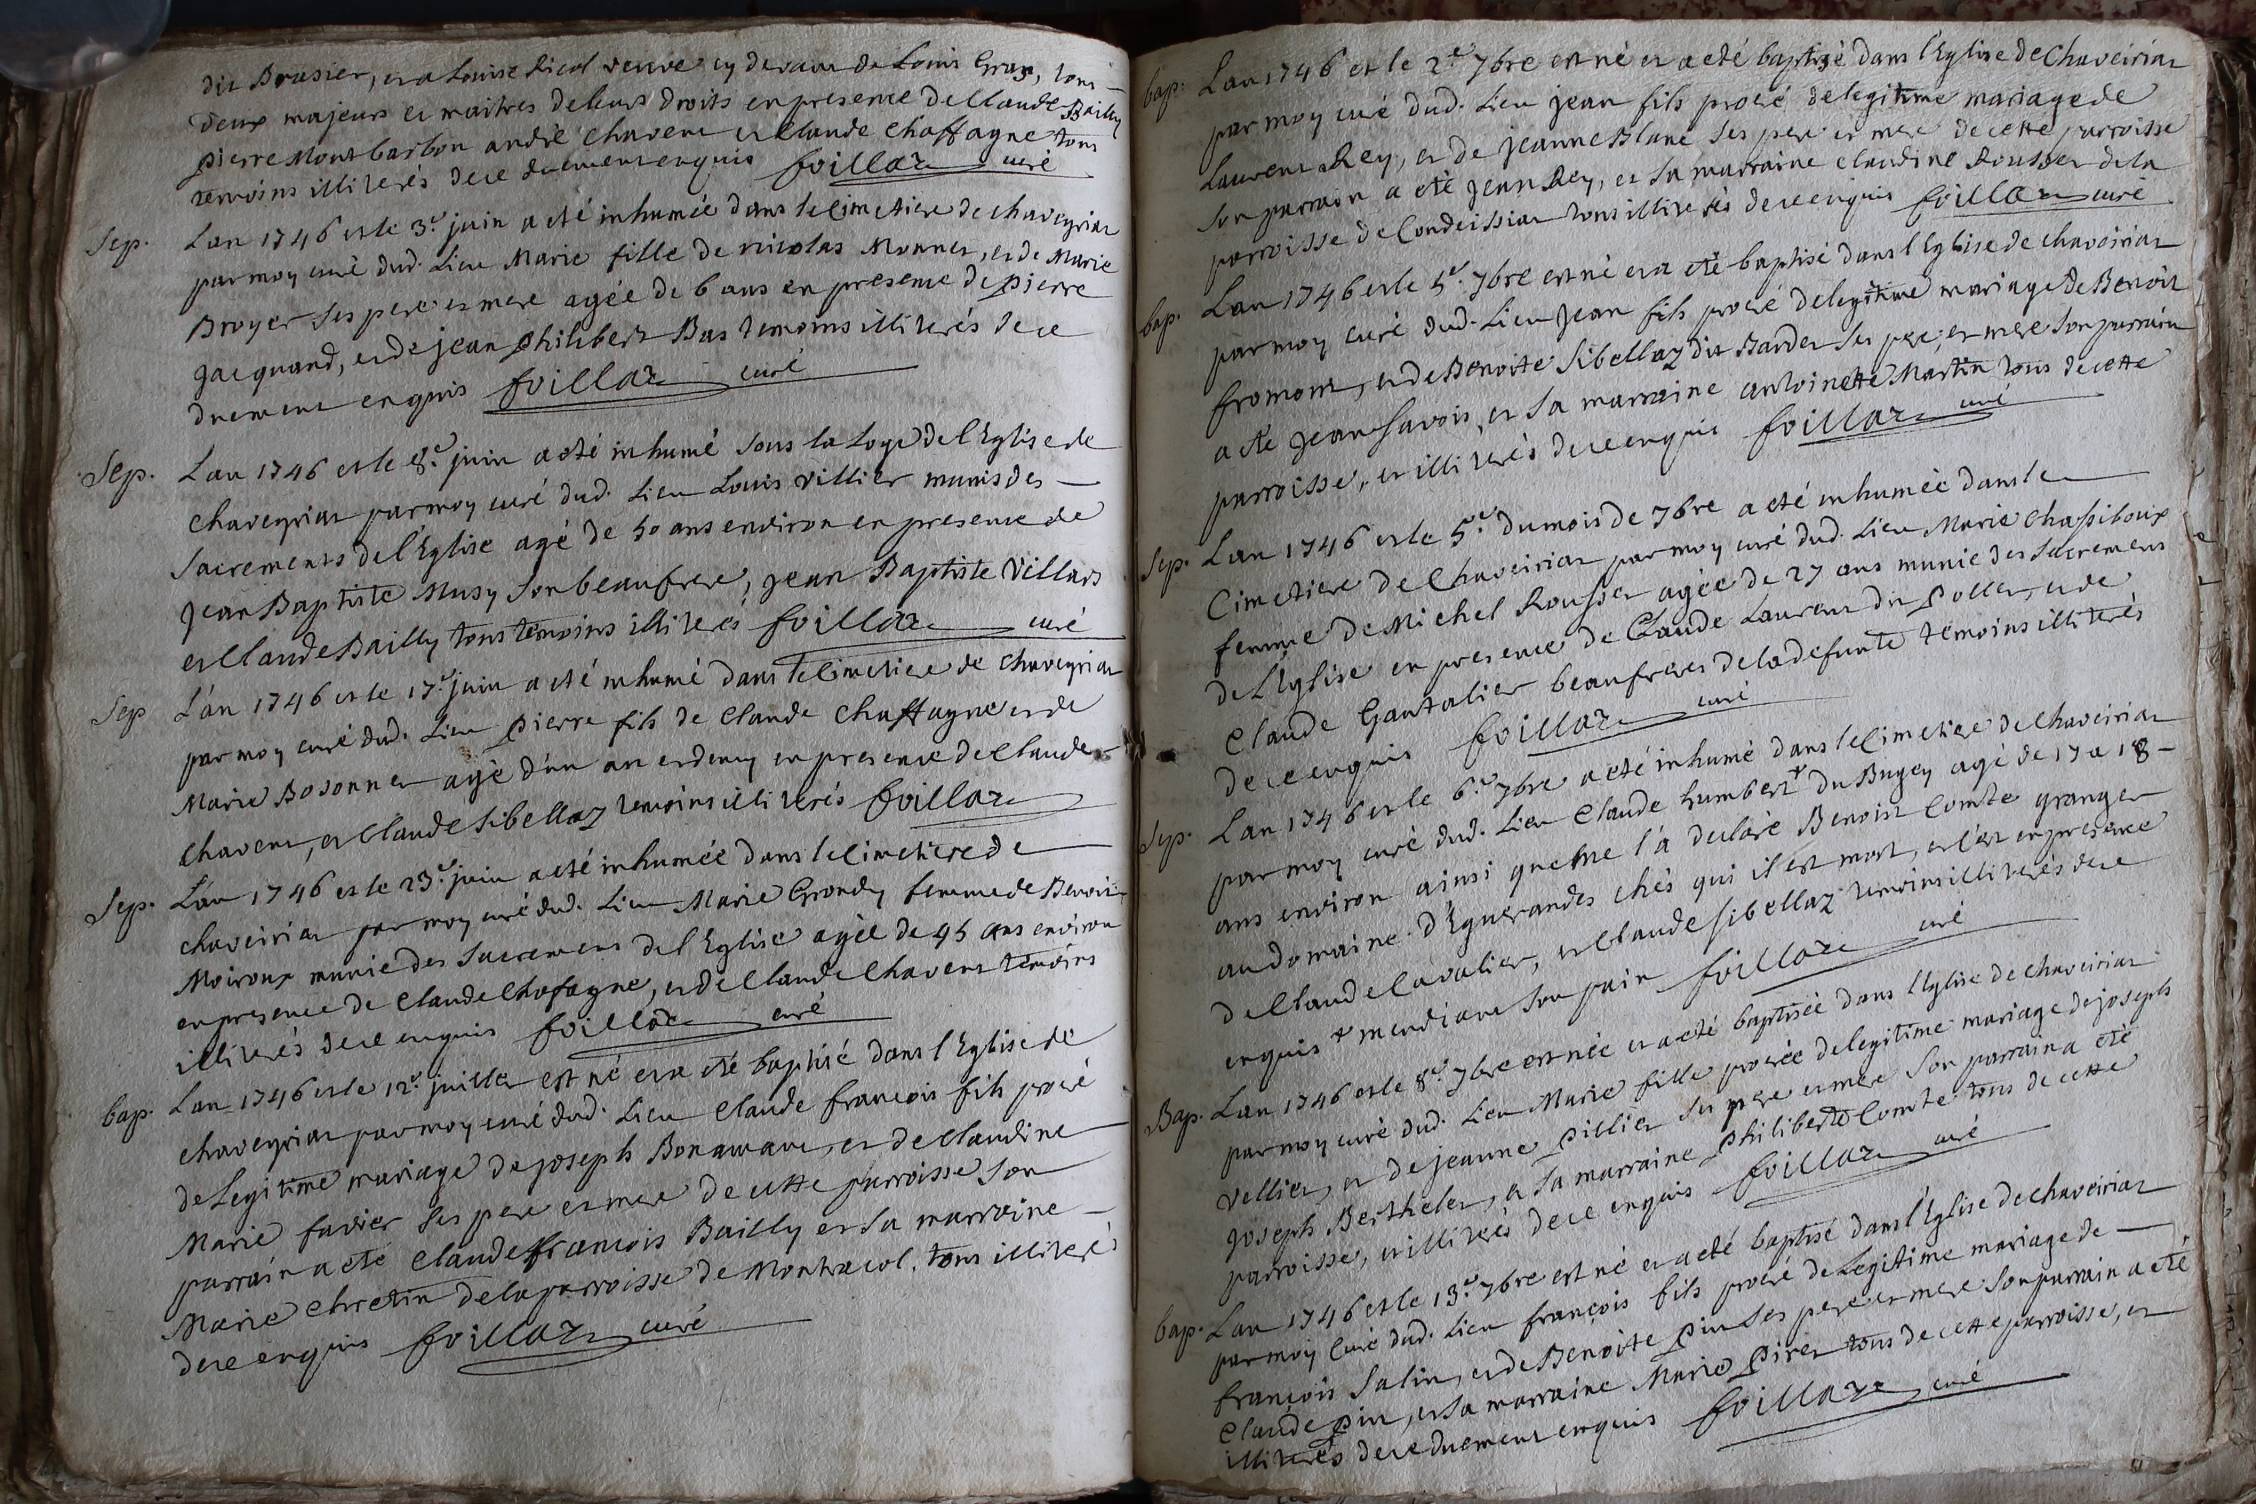 dit Brasier, et a Louise Ricol veuve cy devant de Louis Gras, tous
deux majeurs et maitres de leurs droits en presence de Claude Bailly
pierre Montbarbon andré chavent et Claude Chaffagne tous
temoins illiterés de ce duement enquis foillaz curé
Sep. Lan 1746 et le 3.e juin a eté inhumée dans le Cimetiere de chaveyriat
par moy curé dud. Lieu Marie fille de nicolas Monnet, et de Marie
Broyer ses pere et mere agée de 6 ans en presence de pierre
Jacquand, et de jean philibert Bas temoins illiterés de ce
duement enquis foillaz curé
Sep. Lan 1746 et le 8.e juin a eté inhumé sous la Loge de l'Eglise de
chaveyriat par moy curé dud. Lieu Louis villier munis des
Sacrements de l'Eglise agé de 50 ans environ en presence de
Jean Baptiste Musy son beaufrere, Jean Baptiste Villars
et Claude Bailly tous témoins illiterés foillaz curé
Sep L'an 1746 et le 17.e juin a eté inhumé dans le Cimetiere de chaveyriat
par moy curé dud. Lieu pierre fils de Claude Chaffagne et de
Marie Bosonnet agé d'un an et demy en presence de Claude
chavent, et Claude Sibellaz temoins illiterés foillaz
Sep. L'an 1746 et le 23.e juin a eté inhumée dans le Cimetiere de
chaveiriat par moy curé dud. Lieu Marie Grondy femme de Benoit
Moiroux munie des Sacremens de l'Eglise agée de 45 ans environ
en presence de Claude Chafagne, et de Claude Chavent témoins
illiterés de ce enquis foillaz curé
bap. Lan 1746 et le 12.e juillet est né et a eté baptisé dans l'Eglise de
chaveyriat par moy curé dud. Lieu Claude françois fils procré
de Legitime mariage de joseph Bonamant, et de Claudine
Marie favier ses pere et mere de cette parroisse son
parrain a eté Claude françois Bailly et sa marraine
Marie Chretin de la parroisse de Montracol. tous illiterés
de ce enquis foillaz curé
bap. Lan 1746 et le 2.e 7bre est né et a eté baptisé dans l'Eglise de Chaveiriat
par moy curé dud. Lieu jean fils procré de legitime mariage de
Laurent Rey, et de jeanne Blanc ses pere et mere de cette parroisse
son parrain a eté jean Rey, et sa marraine claudine Rousset de la
parroisse de Condeissiat tous illiterés de ce enquis foillaz curé
bap. Lan 1746 et le 5.e 7bre est né et a eté baptisé dans l'Eglise de chaveiriat
par moy curé dud. Lieu Jean fils procré de legitime mariage de Benoit
fromont, et de Benoite Sibellaz dit Bardet ses pere, et mere son parrain
a eté Jean Savois, et sa marraine antoinette Martin tous de cette
parroisse, et illiterés de ce enquis foillaz curé
Sep. Lan 1746 et le 5.e du mois de 7bre a eté inhumée dans le
Cimetiere de Chaveiriat par moy curé dud. Lieu Marie chassiboux
femme de Michel Roussier agée de 27 ans munie des sacremens
de L'église en presence de Claude Laurent dit pollet, et de
Claude Gantalier beaufreres de la defunte témoins illiterés
de ce enquis foillaz curé
Sep. Lan 1746 et le 6.e 7bre a eté inhumé dans le Cimetiere de Chaveiriat
par moy curé dud. Lieu Claude humbert + du Bugey agé de 17 a 18
ans environ ainsi que me l'a declaré Benoit Comte granger
au domaine d'Eguerandes chés qui il est mort, et c'est en presence
de Claude Cavalier, et Claude Sibellaz temoins illiterés de ce
enquis + mendiant son pain foillaz curé
Bap. Lan 1746 et le 8.e 7bre est née et a eté baptisée dans l'Eglise de chaveiriat
par moy curé dud. Lieu Marie fille procrée de legitime mariage de joseph
vellier, et de jeanne pillier ses pere et mere son parrain a eté
Joseph Berthelet, et sa marraine philiberte Comte tous de cette
parroisse, et illiterés de ce enquis foillaz curé
bap. Lan 1746 et le 13.e 7bre est né et a eté baptisé dans l'Eglise de chaveiriat
par moy curé dud. Lieu françois fils procré de Legitime mariage de
françois Salin, et de Benoite pin ses pere et mere son parrain a eté
Claude pin, et sa marraine Marie piret tous de cette parroisse, et
illiterés de ce duement enquis foillaz curé